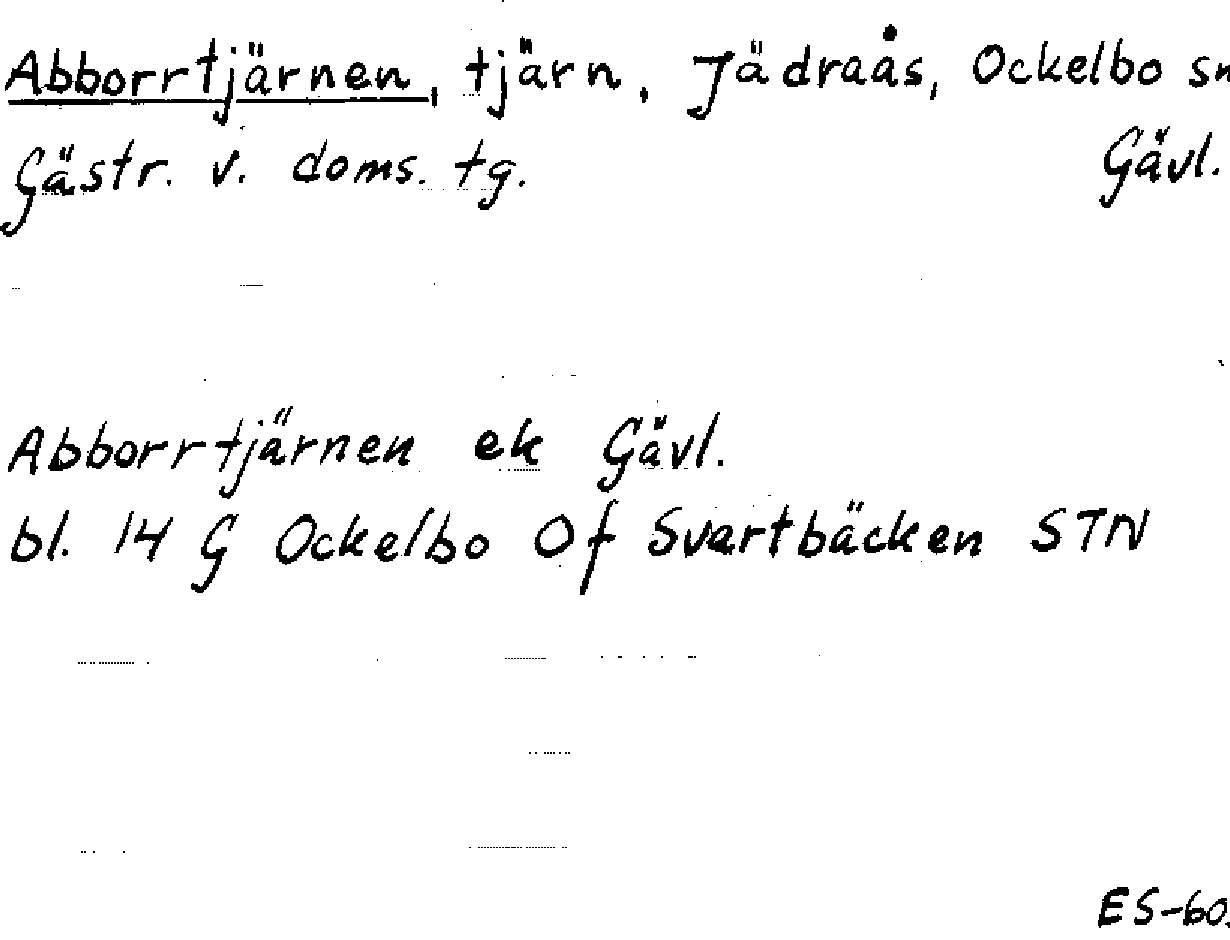 Abborrtjärnen, tjärn, Jädraås, Ockelbo sn
Gästr. v. doms. tg. Gävl.
Abborrtjärnen ek Gävl.
bl. 14 G Ockelbo Of Svartbäcken STN
ES-60.